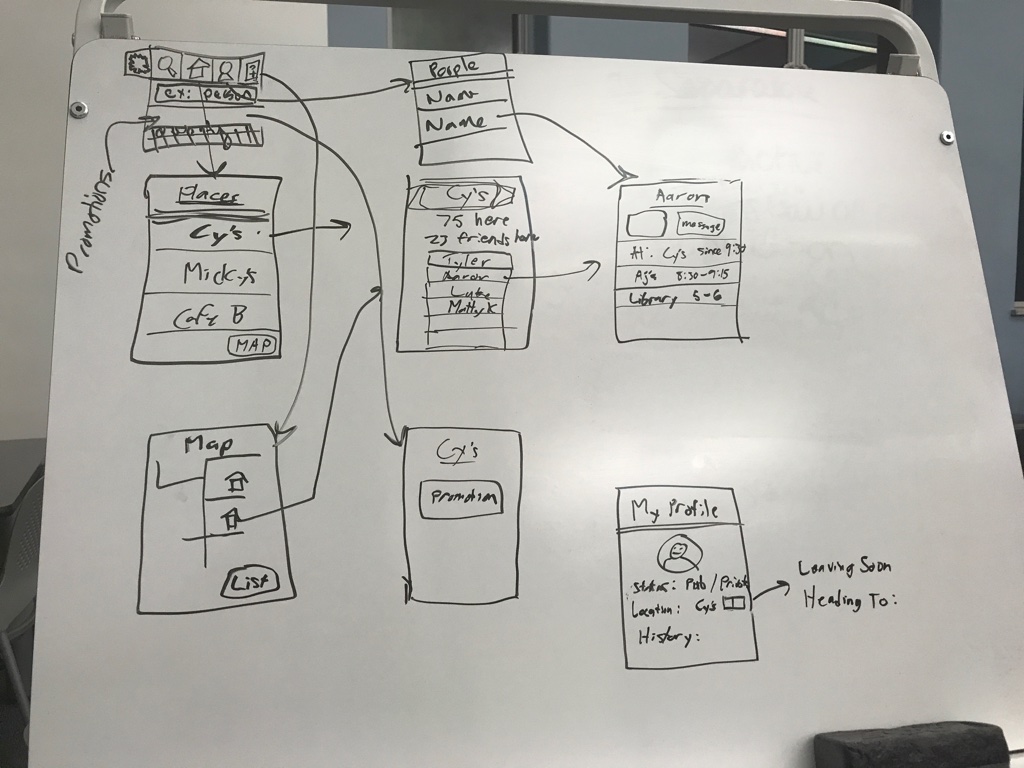 ex: person
Promotions
Places
Cy's
Mickys
Cafe B
MAP
People
Name
Name
Cy's
75 here
23 friends here
Tyler
Aaron
Luke
Matty K
Aaron
message
At: Cy's since 9:30
Aj's 8:30-9:15
Library 5-6
Map
List
Cy's
Promotion
My Profile
Status: Pub / Private
Location: Cy's
History:
Leaving Soon
Heading To: